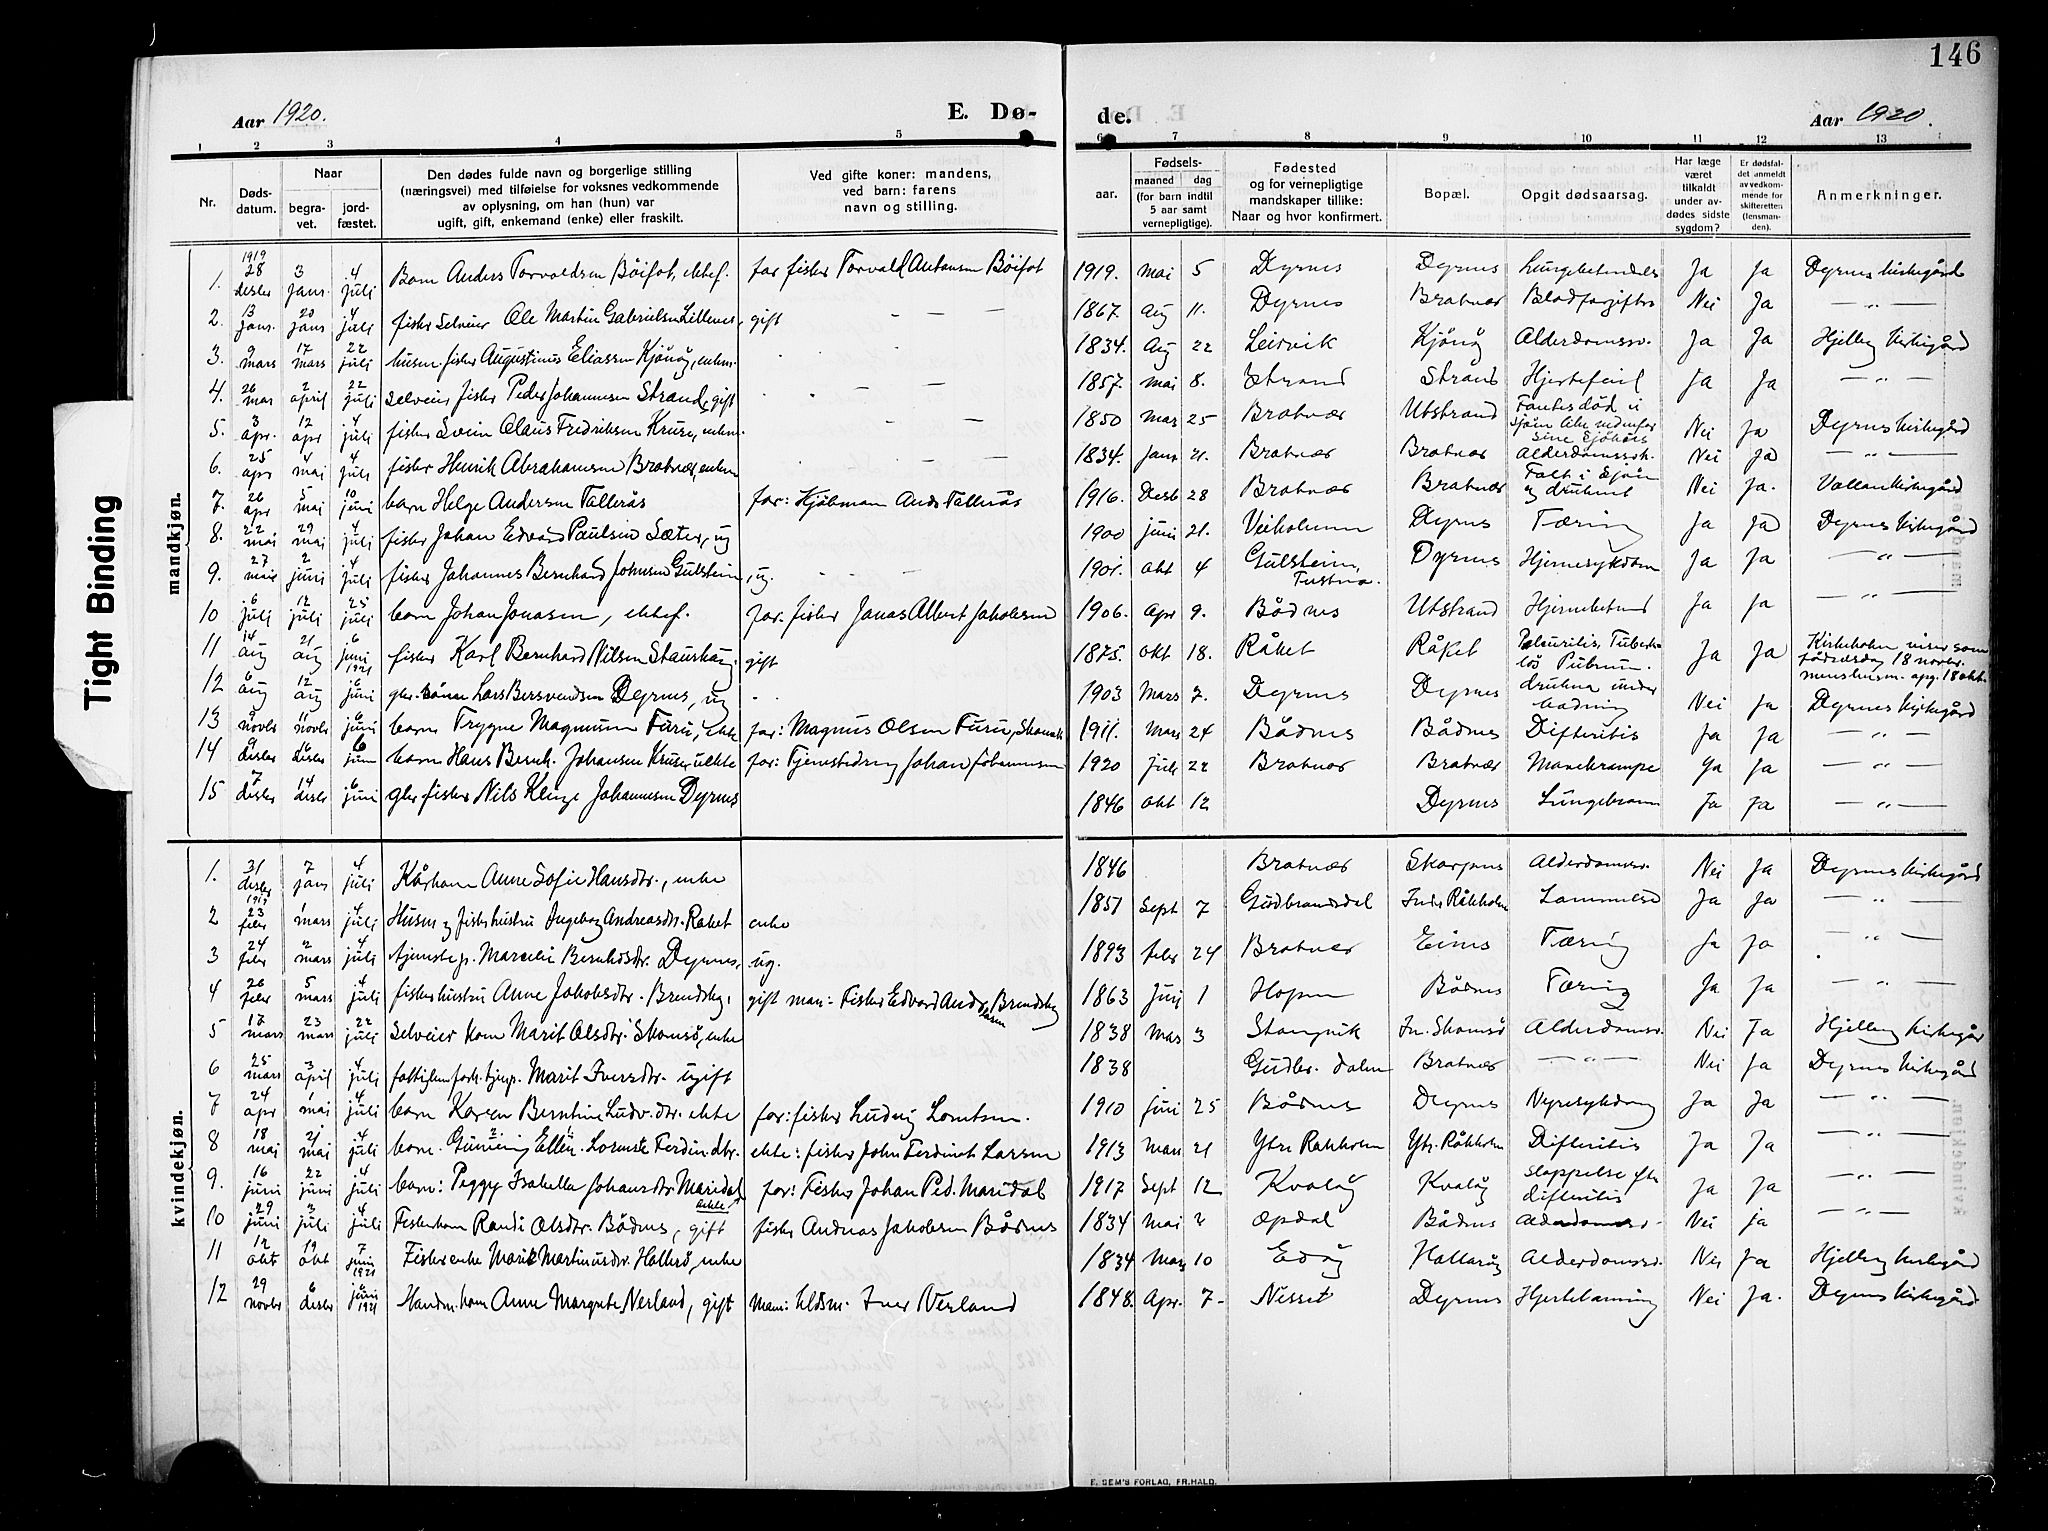 146
Aar 1920.
E. Dø-
de.
Aar 1920.
1 2 3 4 5 6 7 8 9 10 11 12 13
Nr.
Døds-
datum.
Naar
begra-
vet.
jord-
fæstet.
Den dødes fulde navn og borgerlige stilling
(næringsvei) med tilføielse for voksnes vedkommende
av oplysning, om han (hun) var
ugift, gift, enkemand (enke) eller fraskilt.
Ved gifte koner: mandens,
ved barn: farens
navn og stilling.
aar.
Fødsels-
maaned dag
(for barn indtil
5 aar samt
vernepligtige).
Fødested
og for vernepligtige
mandskaper tillike:
Naar og hvor konfirmert.
Bopæl.
Opgit dødsaarsag.
Har læge
været
tilkaldt
under av-
dødes sidste
sygdom?
Er dødsfal-
det anmeldt
av vedkom-
mende for
skifteretten
(lensman-
den).
Anmerkninger.
Tight Binding
mandkjøn.
1. 1919 28 desbr 3 jans. 4 juli Barn Anders Torvaldsen Böifot, ektef. far fisker Torvald Antonsen Böifot 1919. Mai 5 Dyrnes Dyrnes Lungebetændelse Ja Ja Dyrnes kirkegård
2. 13 jans. 20 jans 4 juli fisker selveier Ole Martin Gabrielsen Lillenes, gift 1867 Aug 11. Dyrnes Bratvær Blodforgiftn Nei Ja — „ —
3. 9 mars 17 mars 22 juli husm. fisker Augustinus Eliassen Kjönöy, enkem. 1834. Aug 22 Leirvik Kjönöy Alderdomssv. Ja Ja Hjelbøy kirkegård
4. 26 mar 2 april 22 juli selveier fisker Peder Johannesen Strand, gift 1857. mai 8. Strand Strand Hjertefeil Ja Ja — „ —
5. 3 apr. 12 apr 4 juli fisker Svein Olaus Fredriksen Kruse, enkem. 1850 Mars 25 Bratvær Utstrand Fantes död i sjöen like nedenfor sine Sjöhus Nei Ja Dyrnes kirkegård
6. 25 apr 4 mai 4 juli fisker Henrik Abrahamsen Bratvær, enkem 1834. Jans 21. Bratvær Bratvær Alderdomssv. Nei Ja — „ —
7. 26 apr 5 mai 10 juni barn Helge Andersen Tallerås far: Kjöbman Ands Tallerås 1916. Desb 28 Bratvær Bratvær Falt i Sjöen og druknet Nei Ja. Vollan kirkegård
8. 22 mai 29 mai 4 juli fisker Johan Edvard Paulsen Sæter, ug 1900 juni 21. Veiholmen Dyrnes Tæring Ja Ja Dyrnes kirkegård
9. 27 mai 2 juni 4 juli fisker Johannes Bernhard Johnsen Gulstein, ug. 1901. okt 4 Gulstein, Tustna. Dyrnes Hjernesykdom Ja Ja — „ —
10 6 juli 12 juli 25 juli barn Johan Jonasen, ektef. far: fisker Jonas Albert Jakobsen 1906. Apr 9. Bådnes Utstrand Hjernebetend Ja Ja — „ —
11 14 aug 21 aug 6 juni 1921 fisker Karl Bernhard Nilsen Staurhaug. gift 1875. okt 18. Råket Råket Pleuritis, Tuberkulös Ja Ja Kirkeboken viser som födselsdag 18 novbr. menshusm. opg. 18 okt.
12 6 aug 12 aug 6 juni Lars Bersvendsen Dyrnes, ug 1903 Mars 7. Dyrnes Dyrnes drukna under badning Nei Ja Dyrnes kirkegård
13 5 novbr 11 novbr 6 juni barn Trygve Magnusen Furu, ekte far: Magnus Olsen Furu, Skomak 1911. Mars 24 Bådnes Bådnes Difteritis Ja Ja — „ —
14 9 desbr 16 desbr 6 juni barn Hans Bernh. Johansen Kruse uekte far: Tjenestedreng Johan Johannesen 1920 Juli 22 Bratvær Bratvær Mavekrampe Ja Ja — „ —
15 7 desbr 14 desbr 6 juni glev fisker Nils Klinge Johannesen Dyrnes 1846 okt 12 Dyrnes Lungebetenn Ja Ja — „ —
kvindekjøn.
1. 31 desbr 1919 7 jans 4 juli Kårkone Anne Sofie Hansdtr., enke 1846 Bratvær Skarpnes Alderdomssv. Nei Ja Dyrnes kirkegård
2 23 febr 1 mars 4 juli Husm og fiskerhustru Ingeborg Andreasdtr. Råket enke 1851 Sept 7 Gudbrandsdal Indr. Råkholm Lammelse Ja Ja — „ —
3 24 febr 2 mars 4 juli tjenestep. Marcelie Bernhdsdtr. Dyrnes, ug. 1893 febr 24 Bratvær Eines Tæring Ja Ja — „ —
4 26 febr 5 mars 4 juli fiskerhustru Anne Jakobsdtr. Brendskg, gift man: Fisker Edvard Andreasen Brendskg 1863 Juni 1 Hopen Bådnes Tæring Ja Ja — „ —
5 17 mars 23 mars 22 juli selveier kone Marit Olsdtr. Skomsö, enke 1838 Mars 3 Stangvik In. Skomsö Alderdomsv. Nei Ja Hjelbøy kirkegår
6 25 mars 3 april 4 juli fattiglem forh. tjenp. Marit Iversdtr. ugift 1838 Gudbr. dalen Bratvær — „ — Nei Ja Dyrnes kirkegård
7 24 apr 1 mai 4 juli barn Karen Berntine Ludv. dtr. ekte far: fisker Ludvig Lorntsen. 1910 Juni 25 Bådnes Dyrnes Nyresykdom Ja Ja — „ —
8 18 mai 21 mai 4 juli barn. Gunning Ellen Lorentse Ferdin. dtr. ekte: fisker John Ferdinat Larsen 1913 Mars 21 Ytre Råkholm Ytr. Råkholm Difteritis Ja Ja — „ —
9. 16 juni 22 juni 4 juli barn: Peggy Isabella Johansdtr. Maridal ekte far: Fisker Johan Ped. Maridal 1917 Sept 12 Kvalöy Kvalöy slappelse eftr difteritis Ja Ja — „ —
10 29 juni 3 juli 4 juli Fiskerkone Randi Olsdtr. Bådnes, gift fisker Andreas Jakobsen Bådnes 1834 Mai 2 Opdal Bådnes Alderdomssv. Nei ja — „ —
11 12 okt 19 okt 7 juni 1921 Fisker enke Marit Martinusdtr. Hallarö, enke 1834 Mars 10 Edöy Hallaröy Alderdomssv. Nei Ja Hjelbøy kirkegård
12 29 novbr 6 desbr 6 juni 1921 Handm. kone Anne Margrete Nerland, gift man: Iver Nerland 1848. Apr. 7 Nesset Dyrnes Hjertelamning Nei Ja. Dyrnes kirkegård
E. SEM'S FORLAG, FR.HALD.